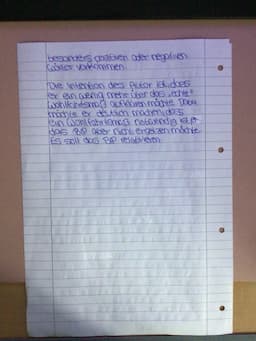 besonders positiven oder negativen
Wörter vorkommen.
Die Intention des Autor ist, dass
er ein wenig mehr über das "echte"
Wohlfahrtsmaß aufklären möchte. Dabei
möchte er deutlich machen, dass
ein Wohlfahrtsmaß notwendig ist,
das BIP aber nicht ersetzen möchte.
Es soll das BIP relativieren.